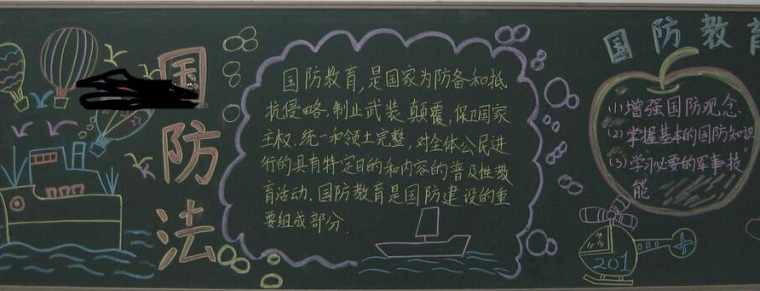 国防法
国防教育,是国家为防备和抵
抗侵略,制止武装颠覆,保卫国家
主权.统一和领土完整,对全体公民进
行的具有特定目的和内容的普及性教
育活动.国防教育是国防建设的重
要组成部分.
国防教育
(1)增强国防观念
(2)掌握基本的国防知识
(3)学习必要的军事技
能
201